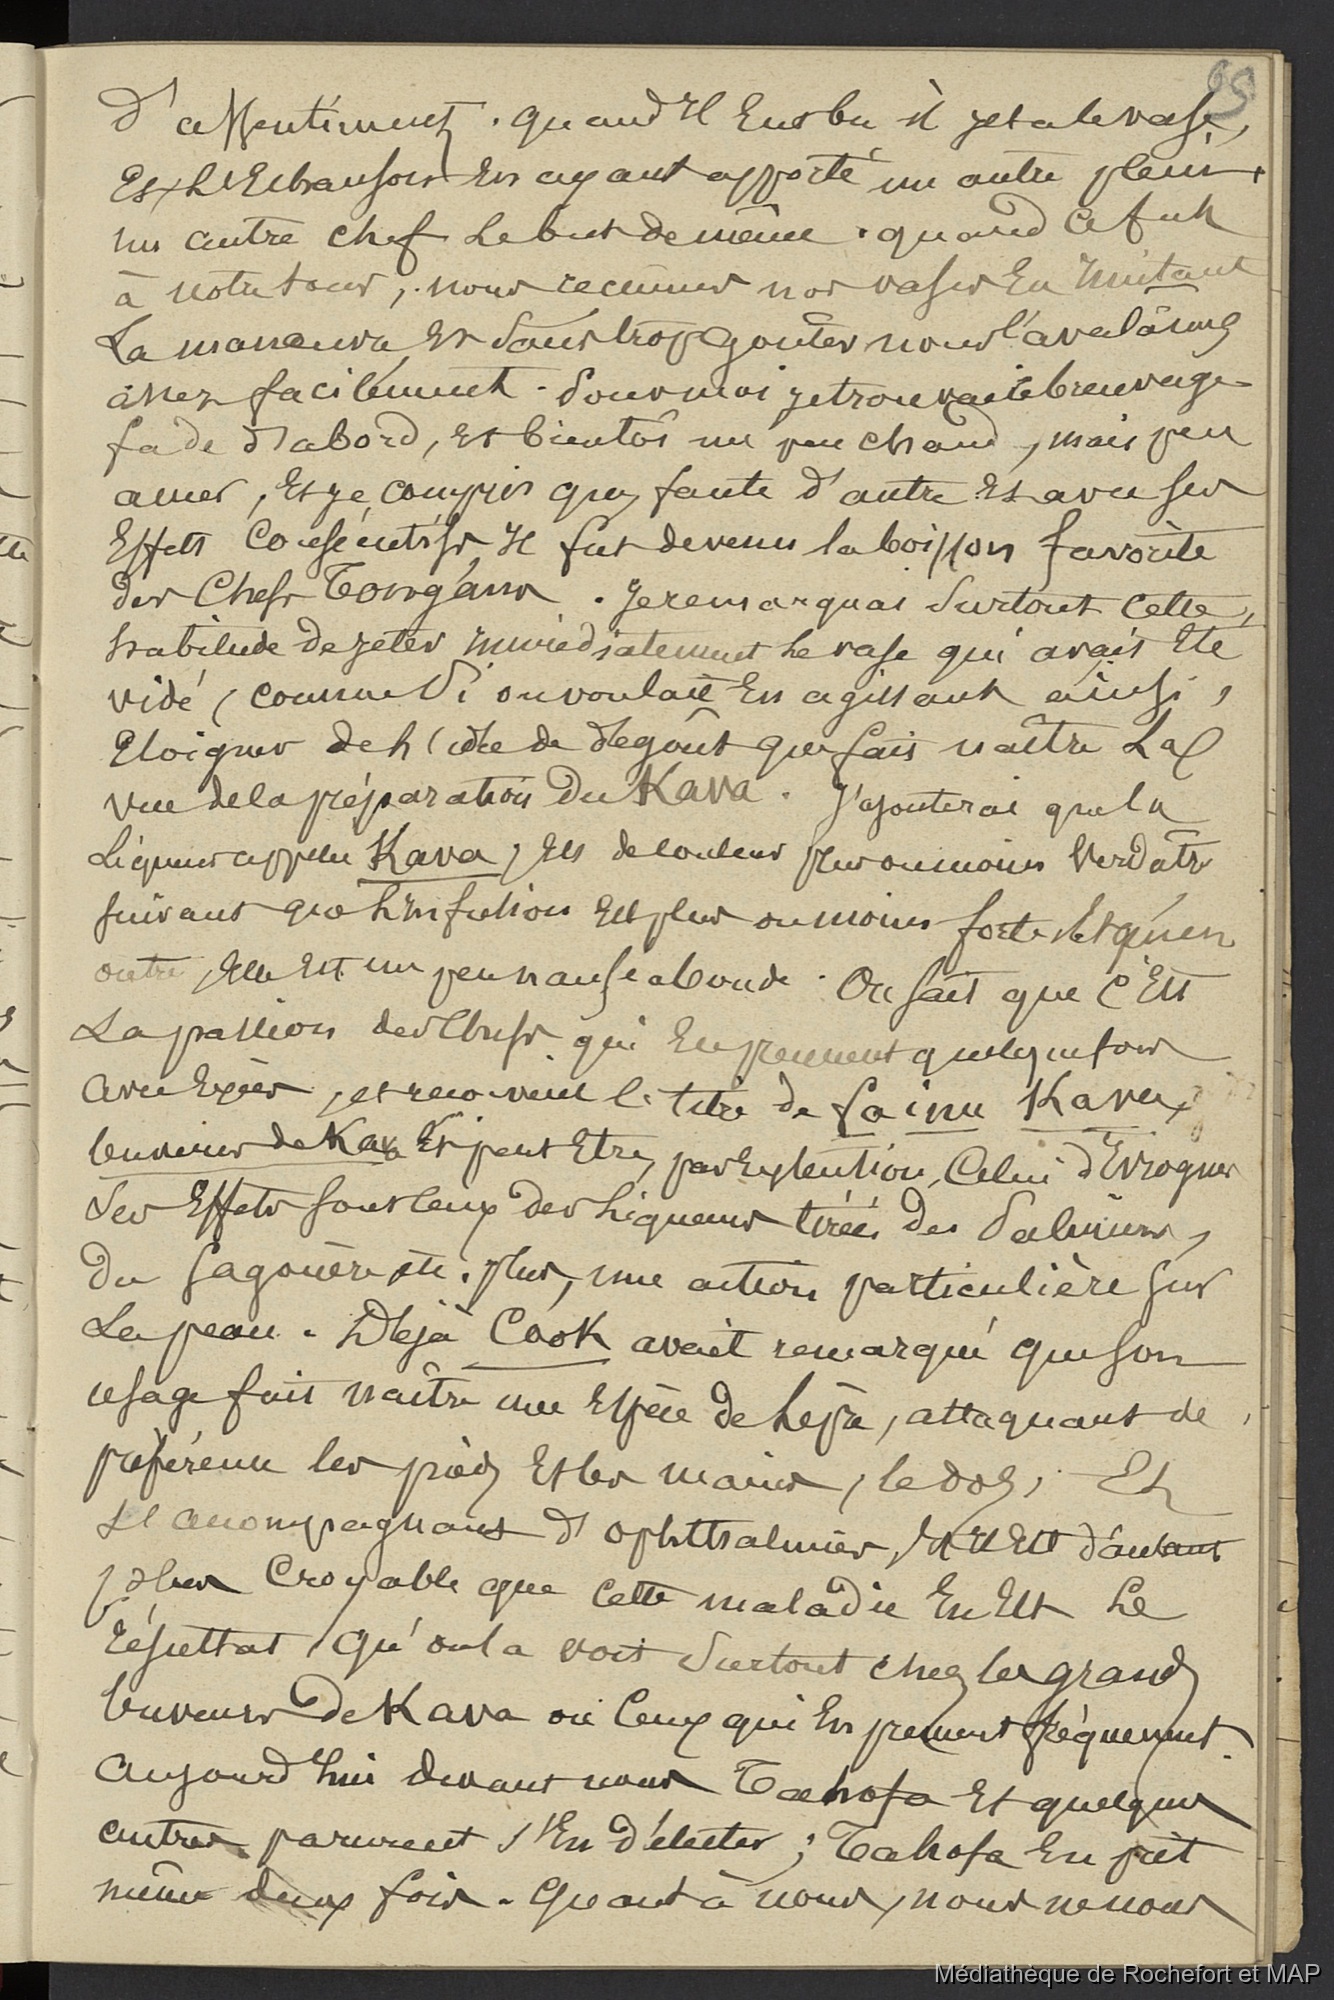 95
d'assentiment. quand Il Eut bu il jeta le vase,
Et L'Echanson En ayant apporté un autre plein,
un autre chef Le but de même. quand ce fut
à notre tour, nous reçûmes nos vases En Imitant
La manœuvre Et Sans trop goûter nous l'avalâmes
assez facilement. Pour moi je trouvai le breuvage
fade d'abord, et bientôt un peu chaud, mais peu
amer, Et je compris que, faute d'autre Et avec ses
Effets Consécutifs Il fut devenu la boisson favorite
des Chefs Tongans. Je remarquai Surtout cette
habitude de jeter Immédiatement Le vase qui avait Eté
vidé, comme Si on voulait En agissant ainsi,
Eloigner de L'idée de dégoût que fait naître La
vue de la préparation du Kava. J'ajouterai que la
Liqueur appelée Kava, Est de couleur plus ou moins Verdâtre
suivant que L'Infusion Est plus ou moins forte Et qu'en
outre, Elle Est un peu nauséabonde. On sait que c'Est
La passion des Chefs qui En prennent quelquefois
avec Excès, et reçoivent le titre de fainu Kava,
buveurs de Kava Et peut Etre, par Extention, Celui d'Ivrognes
Ses Effets sont ceux des Liqueurs tirées des Palmiers,
du Sagouère etc. plus, une action particulière sur
La peau. Déjà Cook avait remarqué que son
usage fait naître une Espèce de Lèpre, attaquant de
préférence les pieds Et les mains, le dos, Et
s'accompagnant d'ophthalmies, Et Il Est d'autant
plus Croyable que cette maladie En Est Le
résultat, qu'on la voit Surtout chez les grands
buveurs de Kava ou Ceux qui En prennent fréquemment.
Aujourd'hui devant nous Tahofa Et quelques
autres parurent s'En délecter; Tahofa En prit
même deux fois. Quant à nous, nous ne nous
Médiathèque de Rochefort et MAP